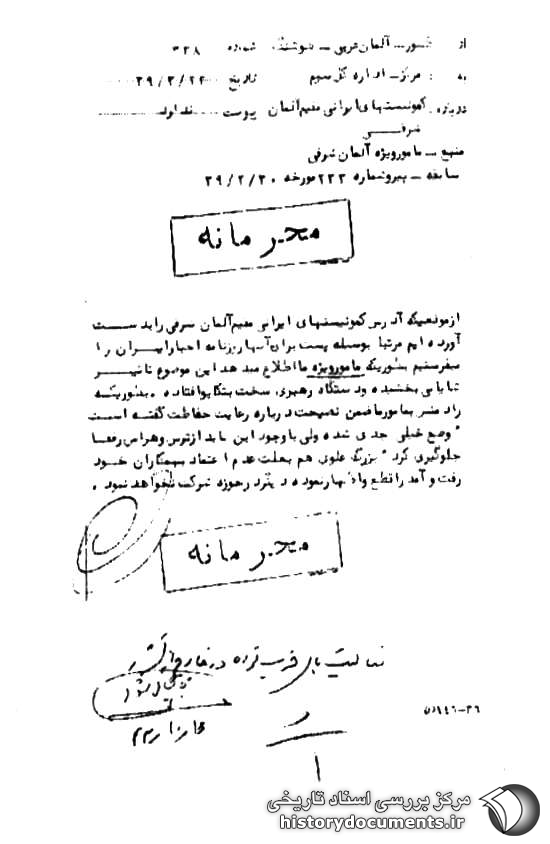 از : کشور ـ آلمان غربی ـ هوشنگ شماره ۳۳۸
به : مرکز ـ اداره کل سیم تاریخ ۳۹/۳/۲۴
درباره کمونیستهای ایرانی مقیم آلمان شرقی پیوست ندارد
منبع ـ مامور ویژه آلمان شرقی
سابقه ـ پیرو شماره ۲۲۳ مورخه ۳۹/۲/۳۰
محرمانه
از موقعیکه آدرس کمونیستهای ایرانی مقیم آلمان شرقی را بدست
آورده ایم مرتبا بوسیله پست برای آنها روزنامه اخبار ایران را
میفرستیم بطوریکه مامور ویژه ما اطلاع میدهد این موضوع تاثیر
شایانی بخشیده و دستگاه رهبری سخت بتکاپو افتاده . بطوریکه
رادمنش بمامور ما ضمن نصیحت درباره رعایت حفاظت گفته است
" وضع خیلی جدی شده ولی با وجود این باید از ترس و هراس رفقا
جلوگیری کرد " بزرگ علوی هم بعلت عدم اعتماد بهمکاران خود
رفت و آمد را قطع و اظهار نموده دیگر در حوزه شرکت نخواهد نمود .
محرمانه
فعالیت های حزب توده در خارج از کشور
۵/۶۴۶-۳۶
۱
مرکز بررسی اسناد تاریخی
historydocuments.ir